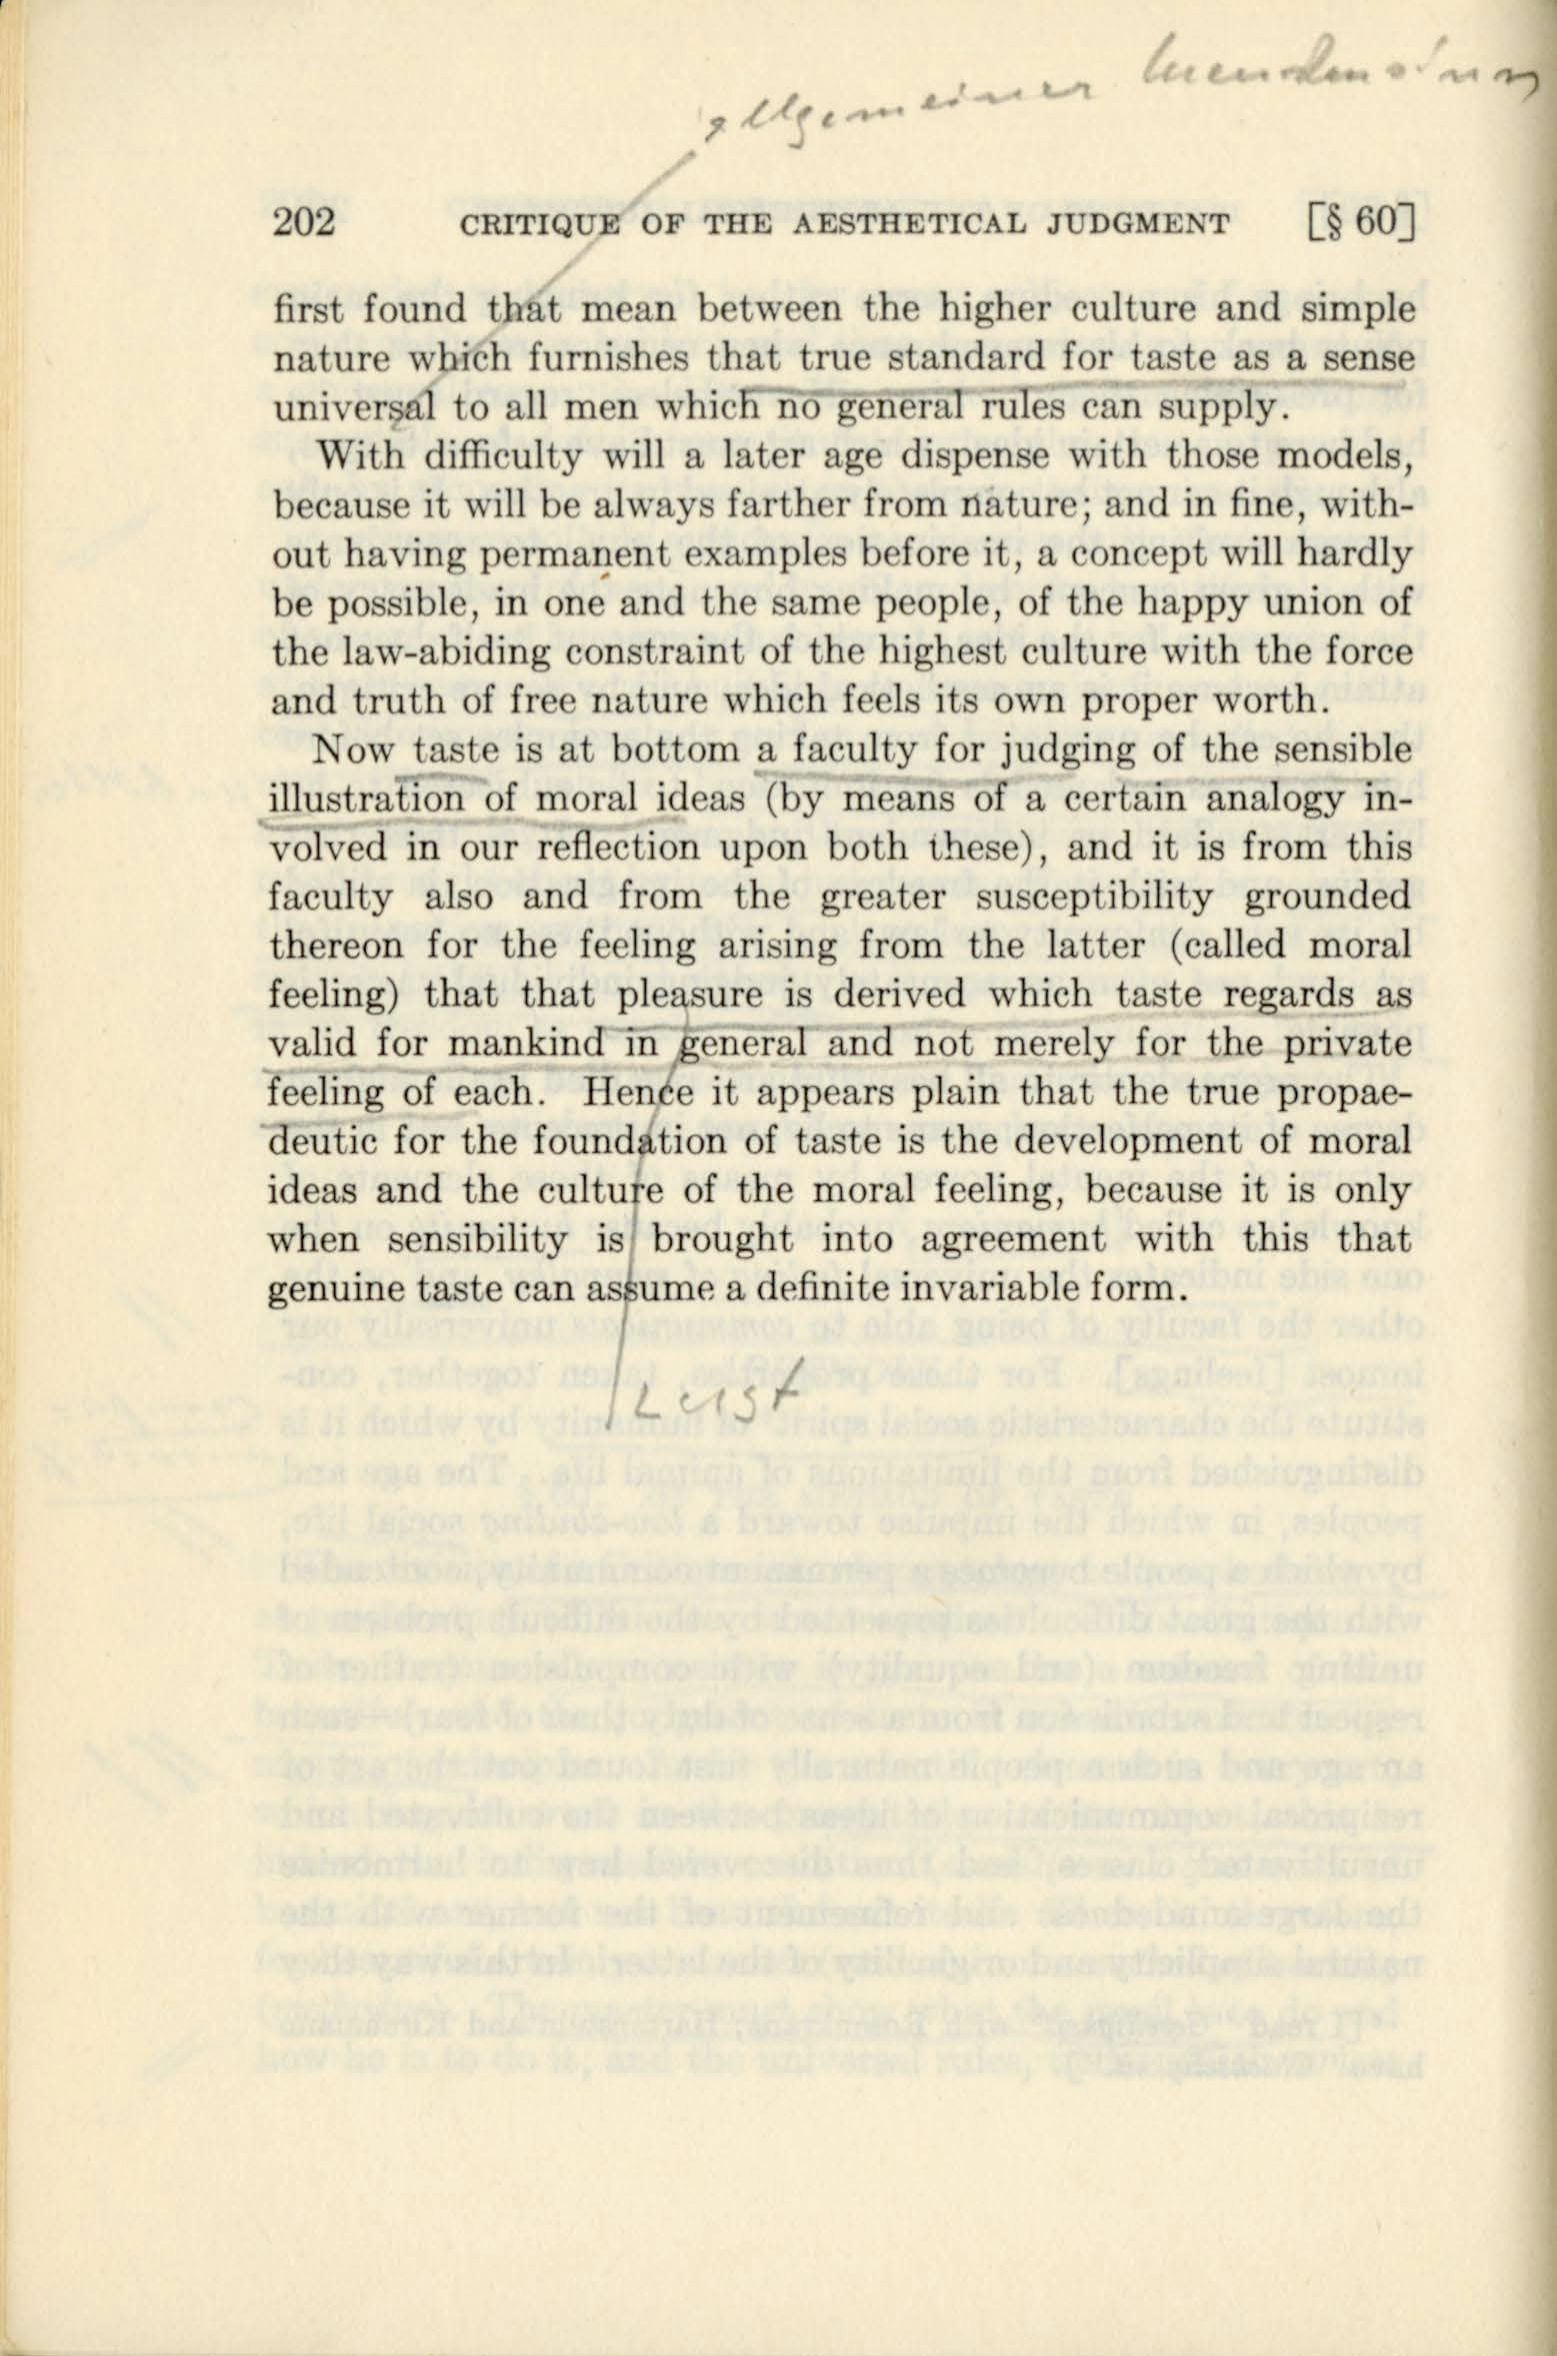 allgemeiner Menschensinn
202 CRITIQUE OF THE AESTHETICAL JUDGMENT [§ 60]
first found that mean between the higher culture and simple
nature which furnishes that true standard for taste as a sense
universal to all men which no general rules can supply.
With difficulty will a later age dispense with those models,
because it will be always farther from nature; and in fine, with-
out having permanent examples before it, a concept will hardly
be possible, in one and the same people, of the happy union of
the law-abiding constraint of the highest culture with the force
and truth of free nature which feels its own proper worth.
Now taste is at bottom a faculty for judging of the sensible
illustration of moral ideas (by means of a certain analogy in-
volved in our reflection upon both these), and it is from this
faculty also and from the greater susceptibility grounded
thereon for the feeling arising from the latter (called moral
feeling) that that pleasure is derived which taste regards as
valid for mankind in general and not merely for the private
feeling of each. Hence it appears plain that the true propae-
deutic for the foundation of taste is the development of moral
ideas and the culture of the moral feeling, because it is only
when sensibility is brought into agreement with this that
genuine taste can assume a definite invariable form.
Lust